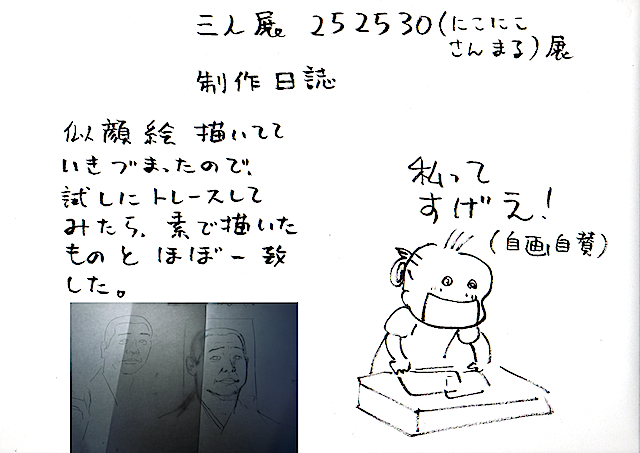 三人展。252530(にこにこ
さんまる)展
制作日誌
似顔絵描いてて
いきづまったので、
試しにトレースして
みたら、素で描いた
ものとほぼ一致
した。
私って
すげえ!
(自画自賛)